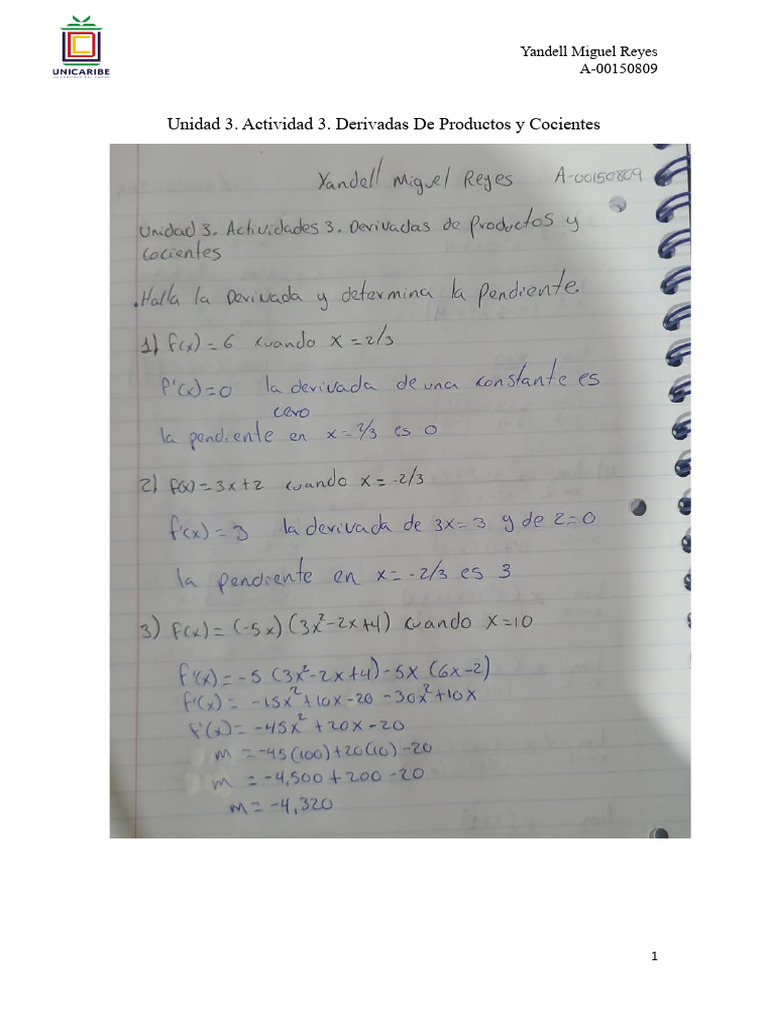 UNICARIBE
Yandell Miguel Reyes
A-00150809
Unidad 3. Actividad 3. Derivadas De Productos y Cocientes
Yandell Miguel Reyes A-00150809
Unidad 3. Actividades 3. Derivadas de Productos y
Cocientes
. Halla la Derivada y determina la Pendiente.
1) f(x) = 6 cuando x = 2/3
f'(x) = 0 la derivada de una constante es
cero
la pendiente en x = 2/3 es 0
2) f(x) = 3x + 2 cuando x = -2/3
f'(x) = 3 la derivada de 3x = 3 y de 2 = 0
la pendiente en x = -2/3 es 3
3) f(x) = (-5x) (3x² - 2x + 4) cuando x = 10
f'(x) = -5 (3x² - 2x + 4) - 5x (6x - 2)
f'(x) = -15x² + 10x - 20 - 30x² + 10x
f'(x) = -45x² + 20x - 20
m = -45(100) + 20(10) - 20
m = -4,500 + 200 - 20
m = -4,320
1